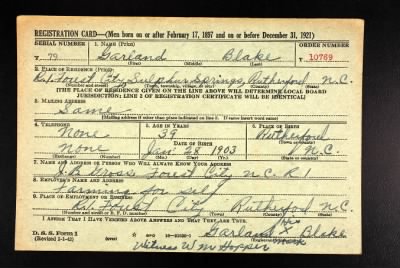 REGISTRATION CARD—(Men born on or after February 17, 1897 and on or before December 31, 1921)
SERIAL NUMBER 1. NAME (Print) ORDER NUMBER
T 79 Garland Blake T 10769
(First) (Middle) (Last)
2. PLACE OF RESIDENCE (Print)
R. 1. Forest City, Sulphur Springs, Rutherford N.C.
(Number and street) (Town, township, village, or city) (County) (State)
(THE PLACE OF RESIDENCE GIVEN ON THE LINE ABOVE WILL DETERMINE LOCAL BOARD
JURISDICTION; LINE 2 OF REGISTRATION CERTIFICATE WILL BE IDENTICAL)
3. MAILING ADDRESS
Same
(Mailing address if other than place indicated on line 2. If same insert word same)
4. TELEPHONE 5. AGE IN YEARS 6. PLACE OF BIRTH
None 39 Rutherford
DATE OF BIRTH (Town or county)
None Jan 28 1903 N.C.
(Exchange) (Number) (Mo.) (Day) (Yr.) (State or country)
7. NAME AND ADDRESS OF PERSON WHO WILL ALWAYS KNOW YOUR ADDRESS
Forest City N.C. R 1
8. EMPLOYER'S NAME AND ADDRESS
Farming for self
9. PLACE OF EMPLOYMENT OR BUSINESS
R. 1. Forest City Rutherford N.C.
(Number and street or R. F. D. number) (Town) (County) (State)
I AFFIRM THAT I HAVE VERIFIED ABOVE ANSWERS AND THAT THEY ARE TRUE.
D. S. S. Form 1 his
(Revised 2-1-42) (over) GPO Garland X Blake
mark
Witness W M Hopper